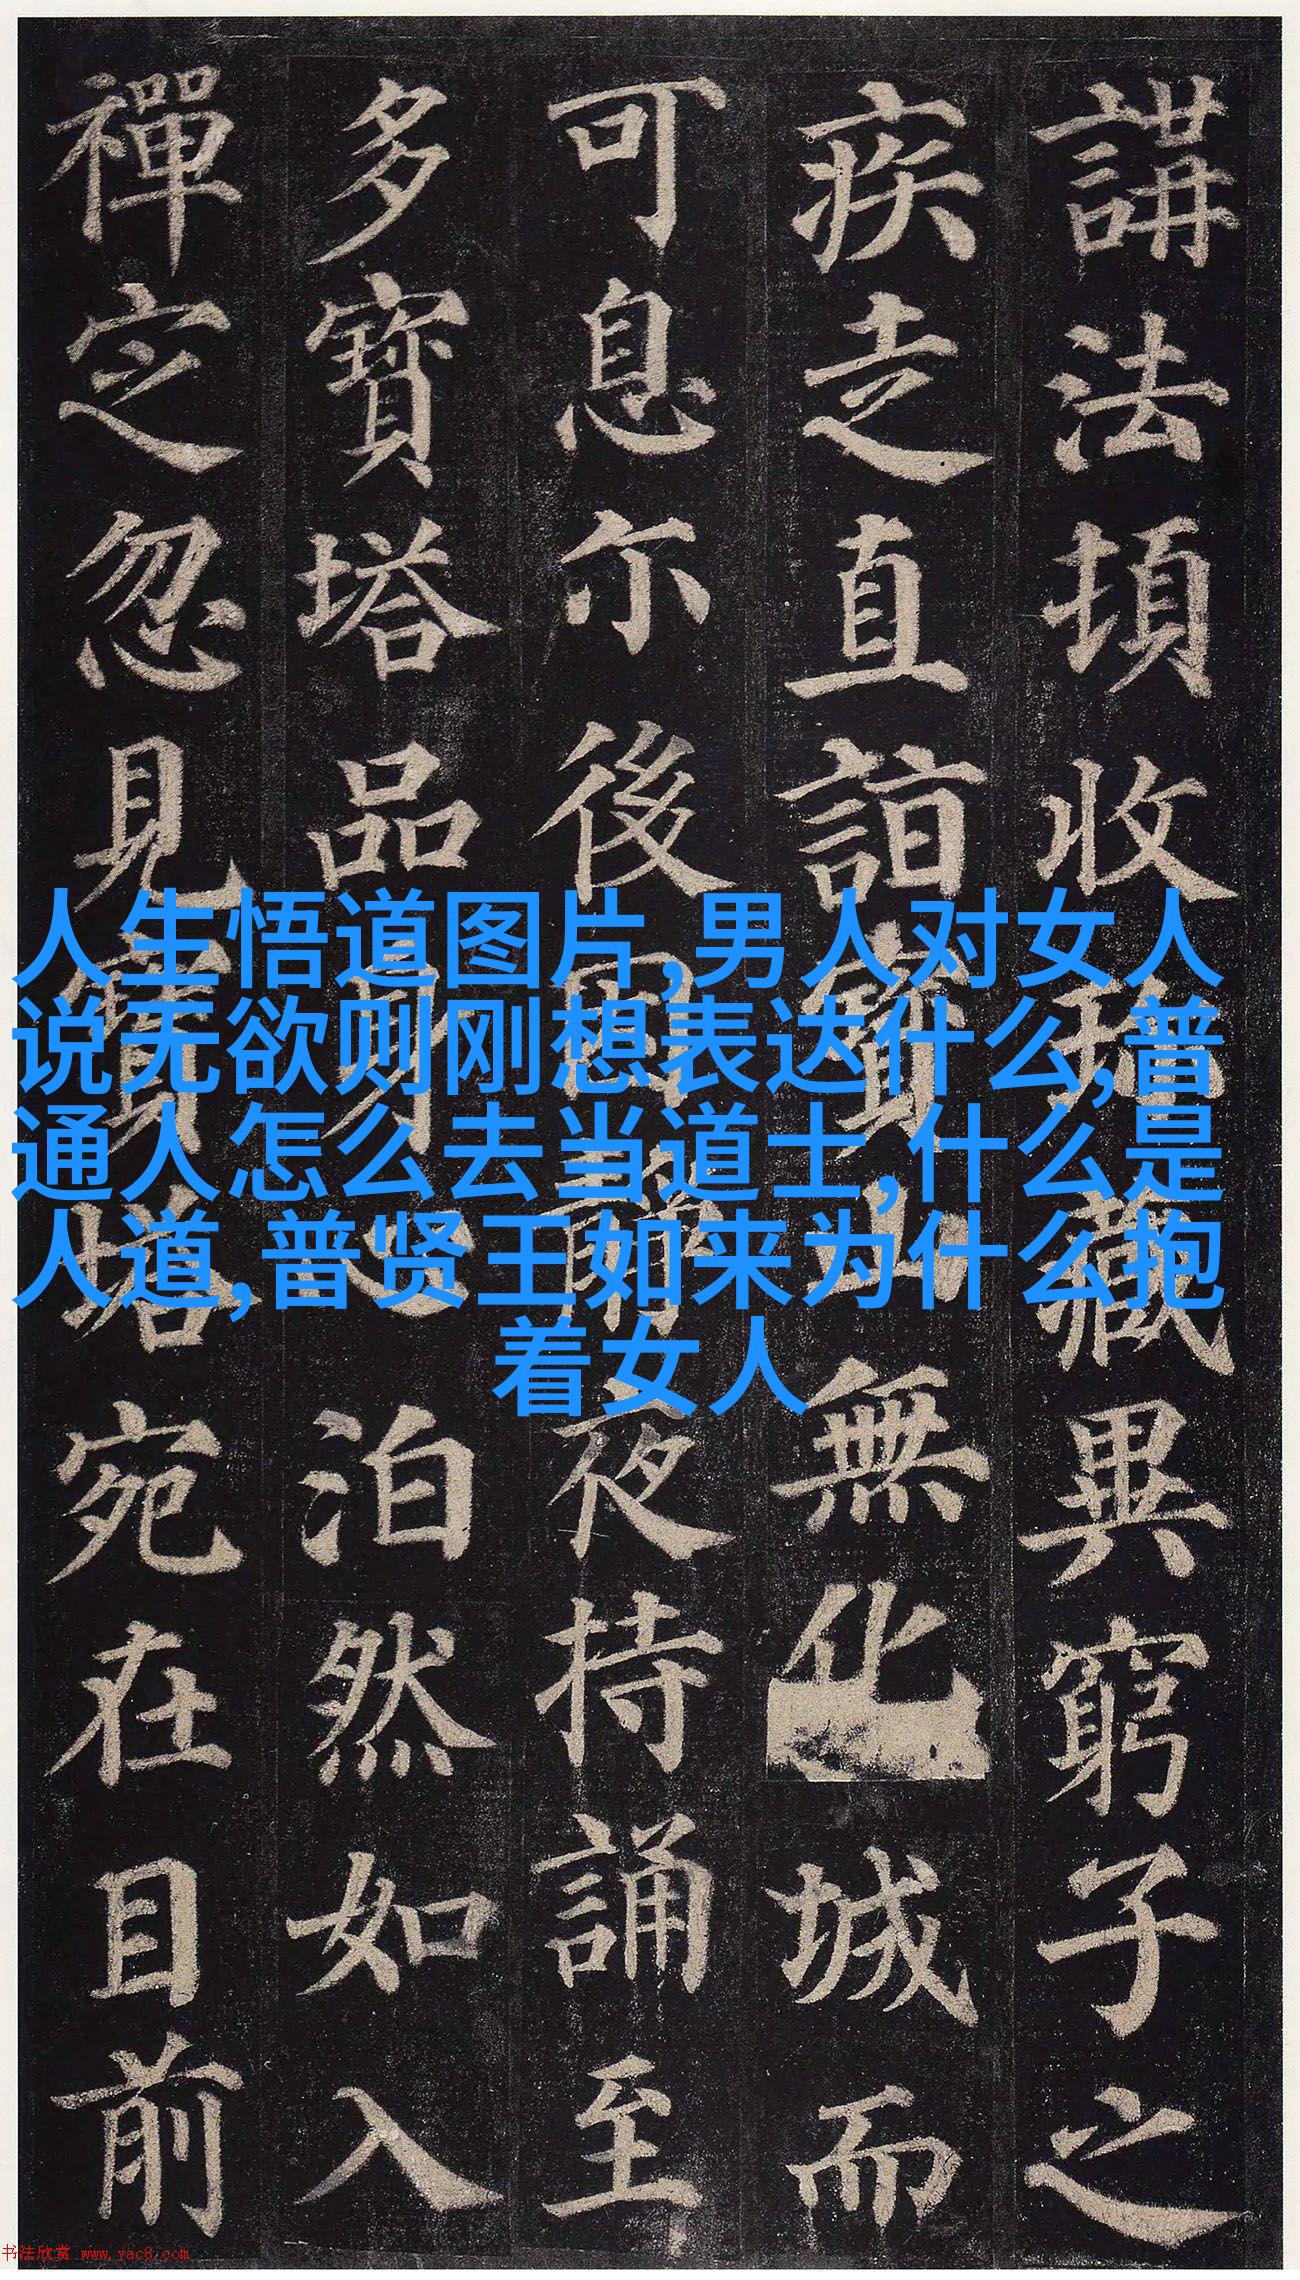 講法頂收珠藏異窮子之
疾走直詣寶山無化城而
可息尒後因静夜持誦至
多寶塔品身心泊然如入
禪定忽見寶塔宛在目前
人生悟道图片,男人对女人
说无欲则刚想表达什么,普
通人怎么去当道士,什么是
人道,普贤王如来为什么抱
着女人
书法欣赏 www.yac8.com